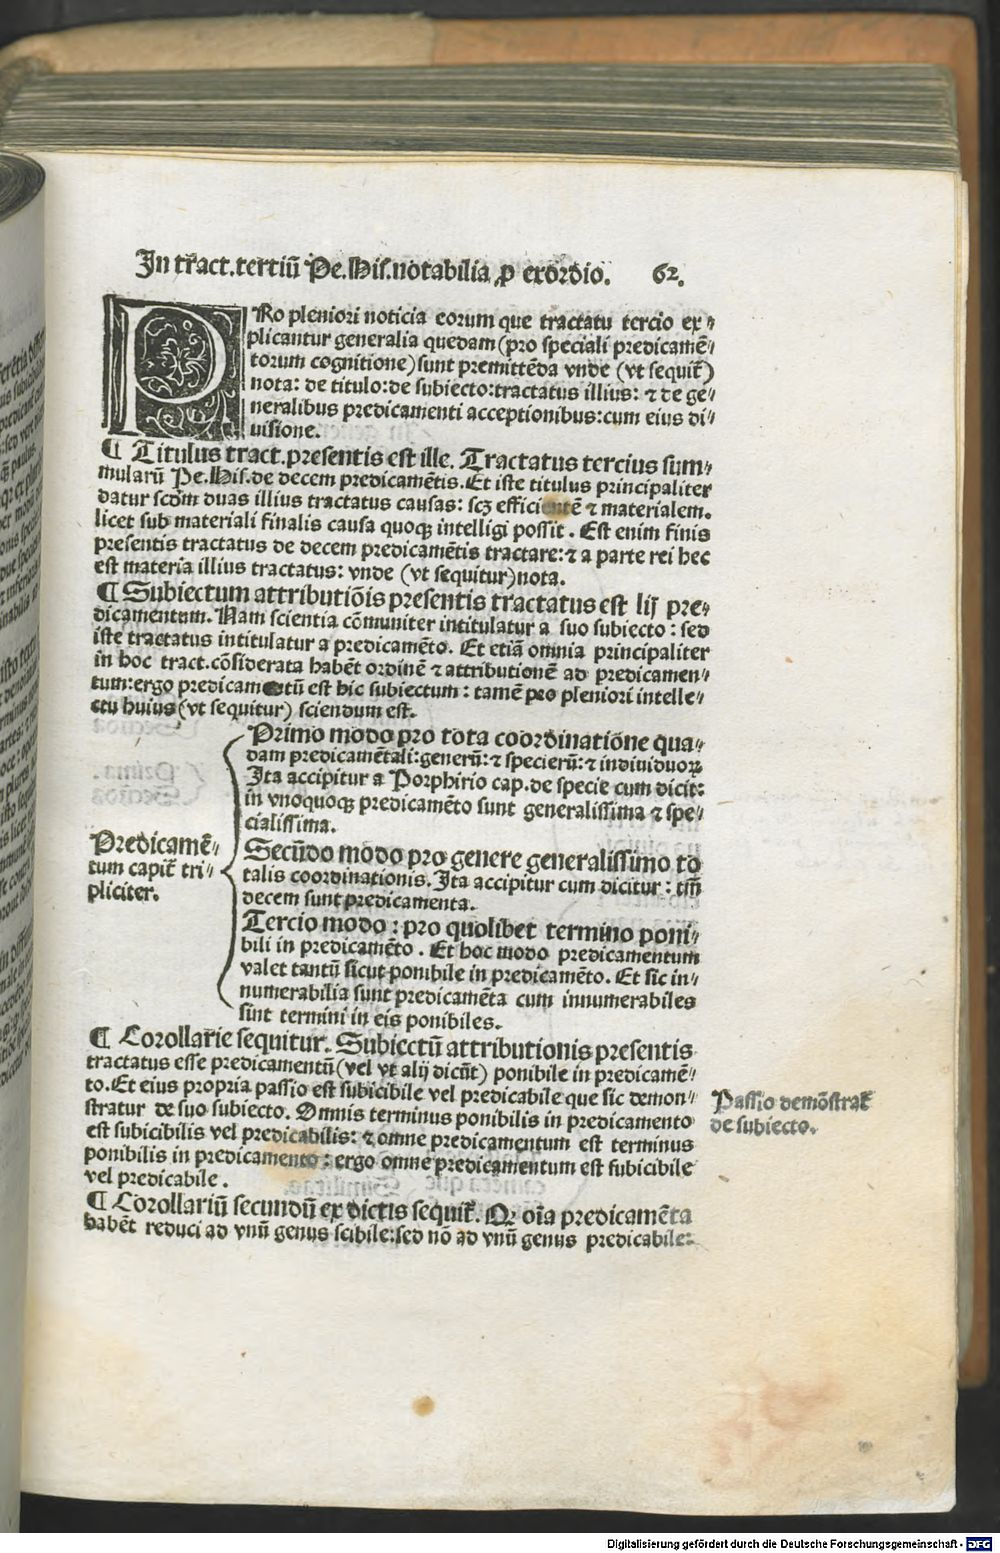 In tract. tertiū Pe. His. notabilia ꝓ exordio. 62.
PRo pleniori noticia eorum que tractatu tercio ex⸗
plicantur generalia quedam (pro speciali predicamē⸗
torum cognitione) sunt premittēda vnde (vt sequit̄)
nota: de titulo: de subiecto: tractatus illius: ⁊ de ge⸗
neralibus predicamenti acceptionibus: cum eius di⸗
uisione.
¶ Titulus tract. presentis est ille. Tractatus tercius sum⸗
mularū Pe. His. de decem predicamētis. Et iste titulus principaliter
datur scd̄m duas illius tractatus causas: scꝫ efficientē ⁊ materialem.
licet sub materiali finalis causa quoqꝫ intelligi possit. Est enim finis
presentis tractatus de decem predicamētis tractare: ⁊ a parte rei hec
est materia illius tractatus: vnde (vt sequitur) nota.
¶ Subiectum attributiōis presentis tractatus est lij pre⸗
dicamentum. Nam scientia cōmuniter intitulatur a suo subiecto: sed
iste tractatus intitulatur a predicamēto. Et etiā omnia principaliter
in hoc tract. cōsiderata habēt ordinē ⁊ attributionē ad predicamen⸗
tum: ergo predicamētū est hic subiectum: tamē pro pleniori intelle⸗
ctu huius (vt sequitur) sciendum est.
Predicamē⸗
tum capit̄ tri⸗
pliciter.
Primo modo pro tota coordinatiōne qua⸗
dam predicamētali: generū: ⁊ specierū: ⁊ indiuiduoꝝ
Ita accipitur a Porphirio cap. de specie cum dicit:
in vnoquoqꝫ predicamēto sunt generalissima ⁊ spe⸗
cialissima.
Secūdo modo pro genere generalissimo to
talis coordinationis. Ita accipitur cum dicitur: tm̄
decem sunt predicamenta.
Tercio modo: pro quolibet termino poni⸗
bili in predicamēto. Et hoc modo predicamentum
valet tantū sicut ponibile in predicamēto. Et sic in⸗
numerabilia sunt predicamēta cum innumerabiles
sint termini in eis ponibiles.
¶ Corollarie sequitur. Subiectū attributionis presentis
tractatus esse predicamentū (vel vt alij dicūt) ponibile in predicamē⸗
to. Et eius propria passio est subicibile vel predicabile que sic demon⸗
stratur de suo subiecto. Omnis terminus ponibilis in predicamento
est subicibilis vel predicabilis: ⁊ omne predicamentum est terminus
ponibilis in predicamento: ergo omne predicamentum est subicibile
vel predicabile.
Passio demōstrat̄
de subiecto.
¶ Corollariū secundū ex dictis sequit̄. Qꝛ oīa predicamēta
habēt reduci ad vnū genus scibile: sed nō ad vnū genus predicabile:
Digitalisierung gefördert durch die Deutsche Forschungsgemeinschaft - DFG